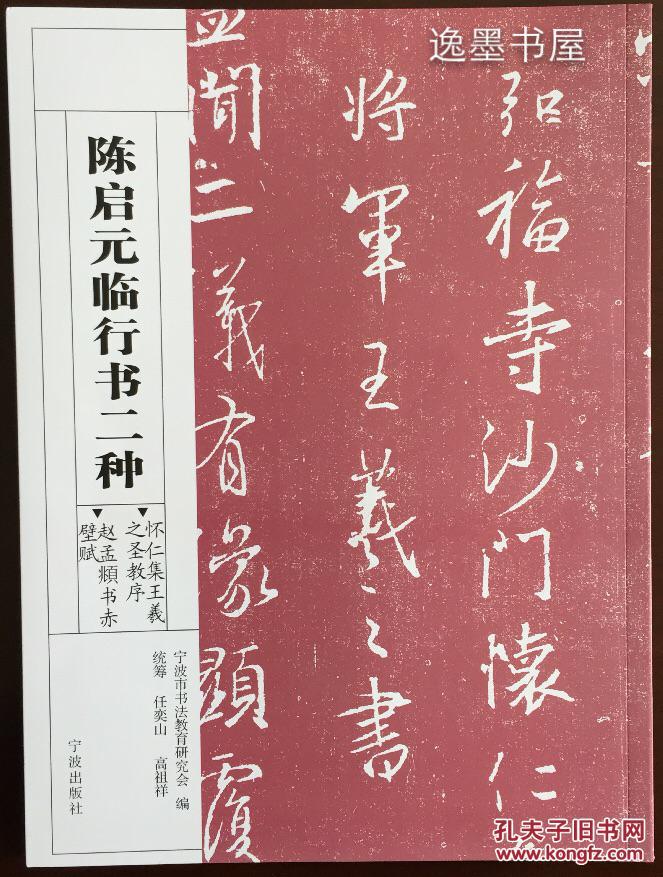 逸墨书屋
陈启元临行书二种
▼怀仁集王羲
之圣教序
▼赵孟頫书赤
壁赋
宁波市书法教育研究会 编
统筹 任奕山 高祖祥
宁波出版社
弘福寺沙門懷仁
将軍王羲之書
盖聞二儀有像顯覆
孔夫子旧书网
www.kongfz.com